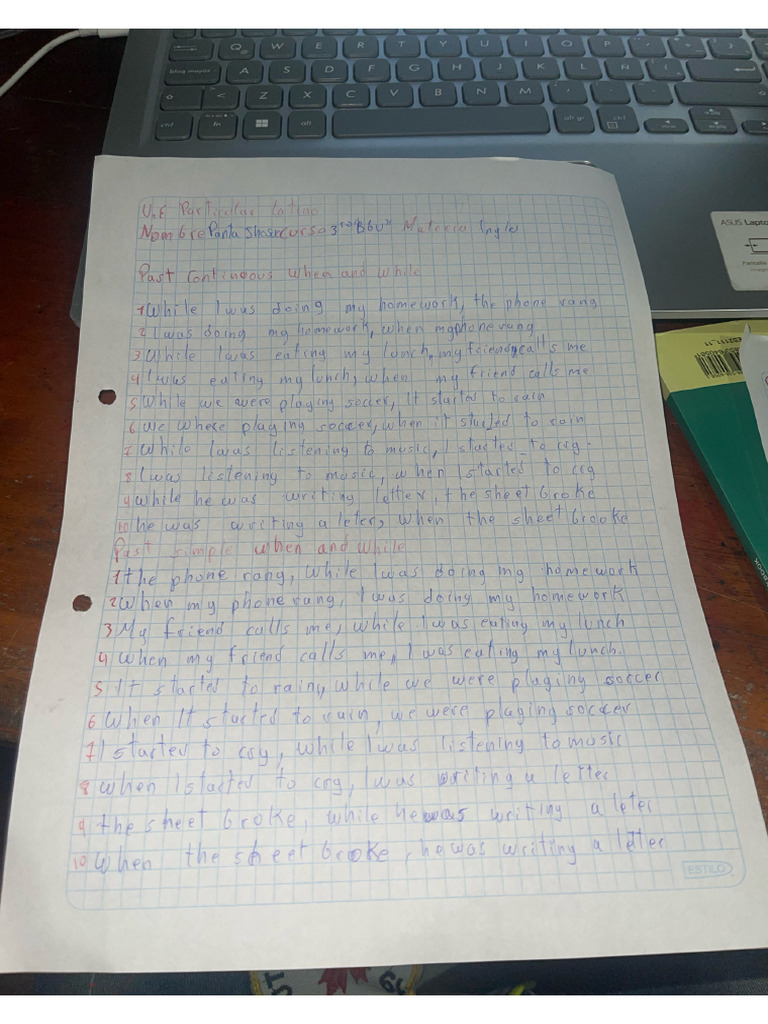 Q W E R T Y U I O P
bloq mayús A S D F G H J K L Ñ
< Z X C V B N M
ctrl fn alt alt gr ctrl
U.E Particular Latino
Nombre Panta Shosn curso 3ro "BGU" Materia Ingle
ASUS Laptop
Pantalla
Past Continuous When and While
1 While I was doing my homework, the phone rang
2 I was doing my homework, when my phone rang
3 While I was eating my lunch, my friend calls me
4 I was eating my lunch, when my friend calls me
5 While we were playing soccer, It started to rain
6 we where playing soccer, when it started to rain
7 While I was listening to music, I started to cry.
8 I was listening to music, when I started to cry
9 while he was writing letter, the sheet broke
10 he was writing a leter, when the sheet brooke
Past simple when and while
1 the phone rang, While I was doing my homework
2 When my phone rang, I was doing my homework
3 My friend calls me, while I was eating my lunch
4 When my friend calls me, I was eating my lunch.
5 It started to rain, while we were playing soccer
6 When It started to rain, we were playing soccer
7 I started to cry, while I was listening to music
8 when I started to cry, I was writing a letter
9 the sheet broke, while he was writing a leter
10 When the sheet broke, he was writing a letter
ESTILO